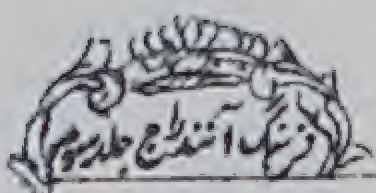 فرهنگ آنندراج جلد سوم